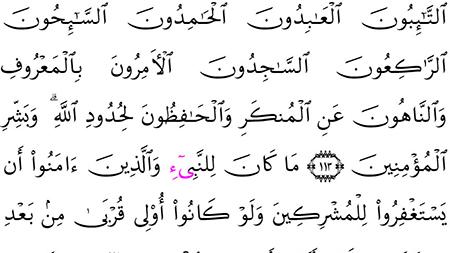 ٱلتَّٰٓئِبُونَ ٱلۡعَٰبِدُونَ ٱلۡحَٰمِدُونَ ٱلسَّٰٓئِحُونَ
ٱلرَّٰكِعُونَ ٱلسَّٰجِدُونَ ٱلۡأٓمِرُونَ بِٱلۡمَعۡرُوفِ
وَٱلنَّاهُونَ عَنِ ٱلۡمُنكَرِ وَٱلۡحَٰفِظُونَ لِحُدُودِ ٱللَّهِۗ وَبَشِّرِ
ٱلۡمُؤۡمِنِينَ ١١٣ مَا كَانَ لِلنَّبِيٓءِ وَٱلَّذِينَ ءَامَنُوٓاْ أَن
يَسۡتَغۡفِرُواْ لِلۡمُشۡرِكِينَ وَلَوۡ كَانُوٓاْ أُوْلِي قُرۡبَىٰ مِنۢ بَعۡدِ